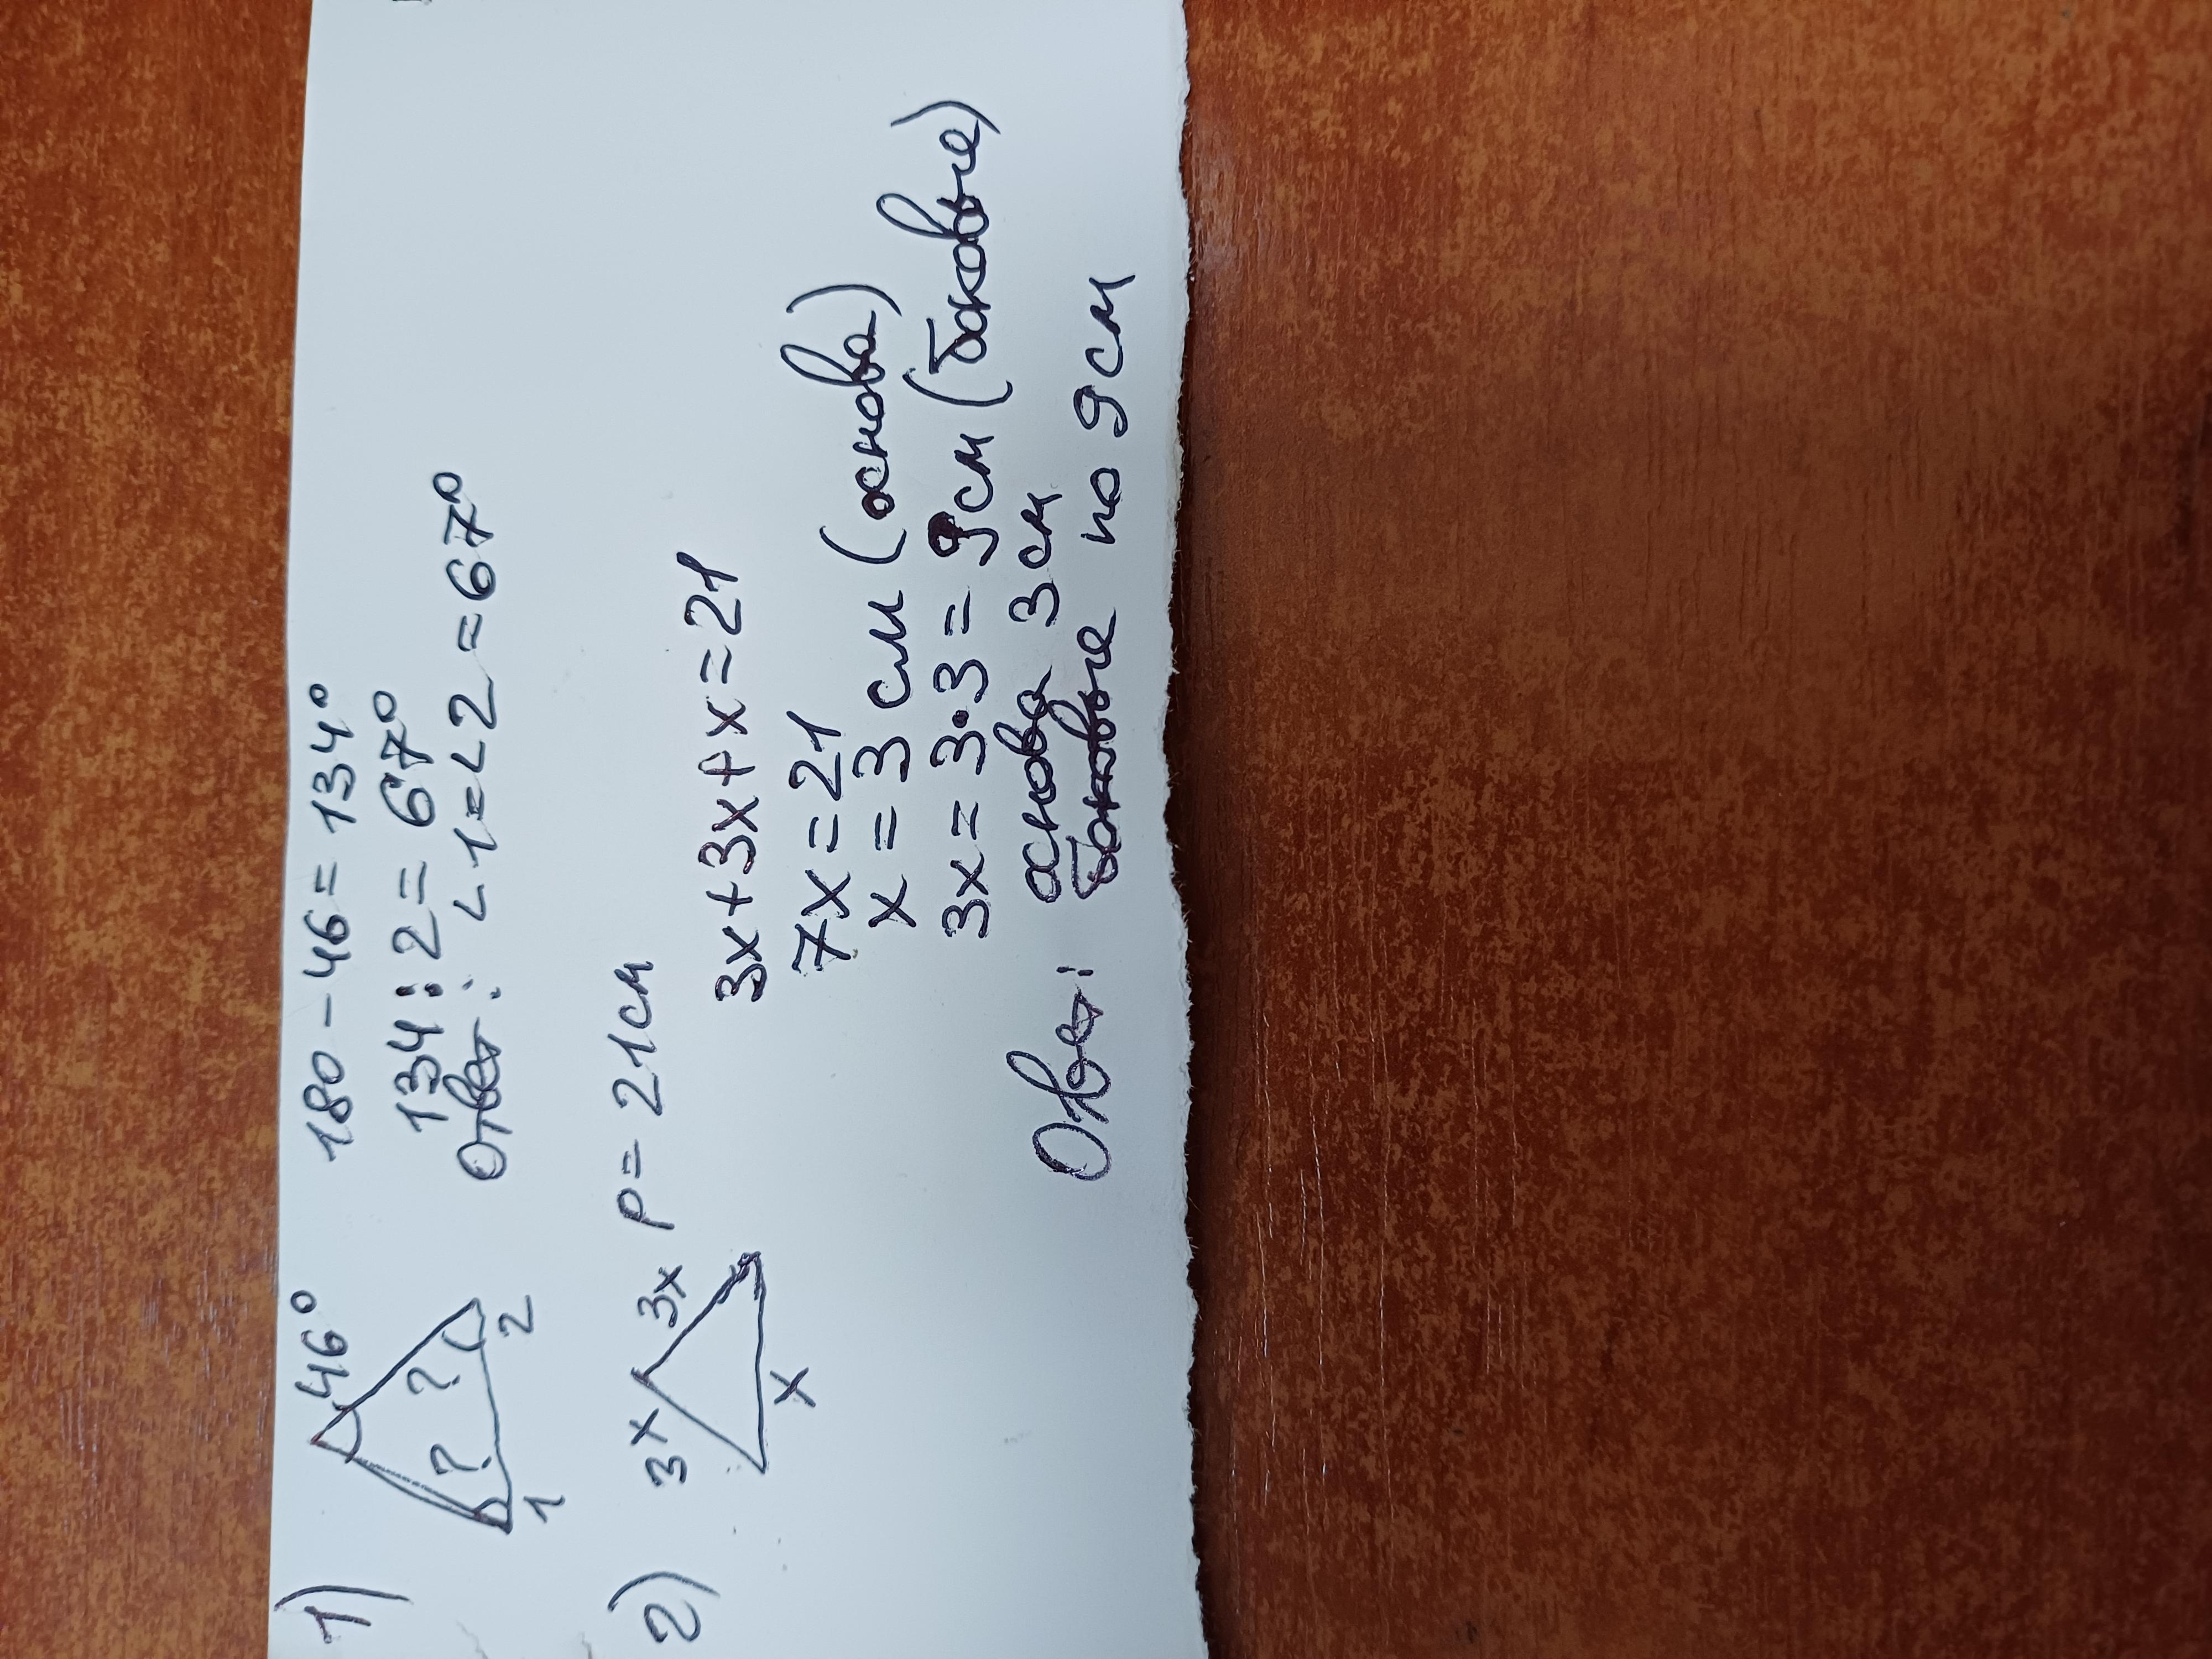 1) 46° 180 - 46 = 134°
? ? 134 : 2 = 67°
1 2 Ответ: <1=<2 = 67°
2) 3x 3x P = 21см
x
3x+3x+x=21
7x=21
x = 3 см (основа)
3x = 3·3 = 9см (боковые)
Ответ: основа 3см
боковые по 9см